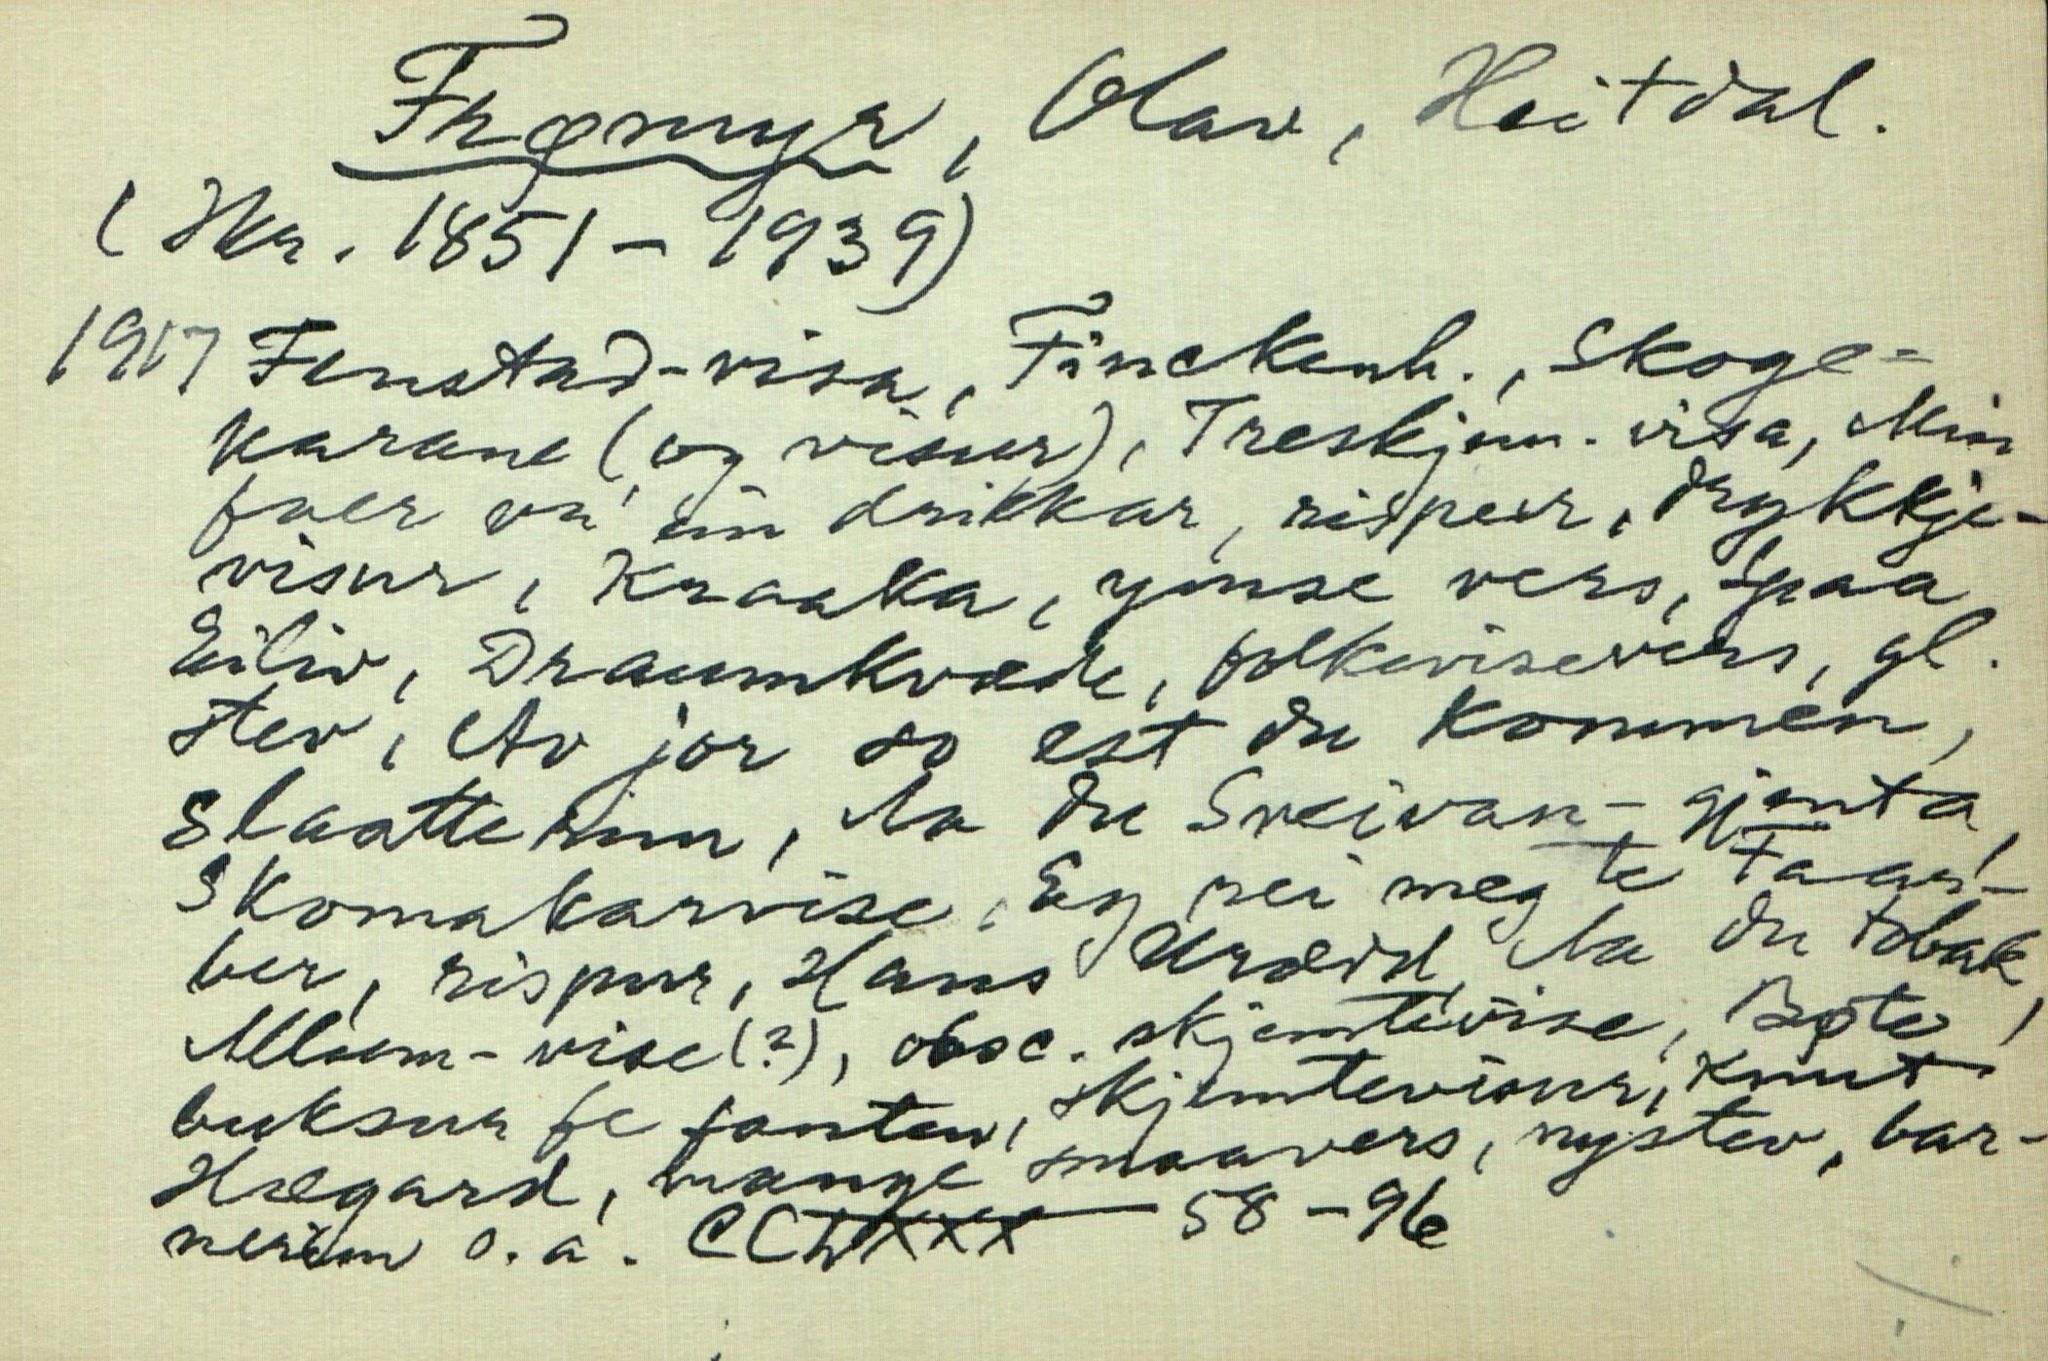 Frømyr, Olav, Heitdal.
(Hkr. 1851-1939)
1917 Fenstad-visa, Finckenh., Skoge-
karane (og visur), Treskjem. visa, Min
faer va' ein drikkar, rispeur, drykkje-
visur, Kraaka, ymse vers, Spaa
Eiliv, Draumkvæde, folkevisevers, gl.
stev, Av jor so est du kommen,
Slaatterim, Aa du Sveivan-gjenta,
Skomakarvise, Eg rei meg te Faari-
ber, rispur, Hans Uræid, Aa du tobak,
Moem-vise(?), obsc. skjemtevise, Bøte
buksur fe fanten, skjemtevisur, Knut
Hægard, mange smaavers, nystev, bar-
nerim o.a. CCLXXX 58-96